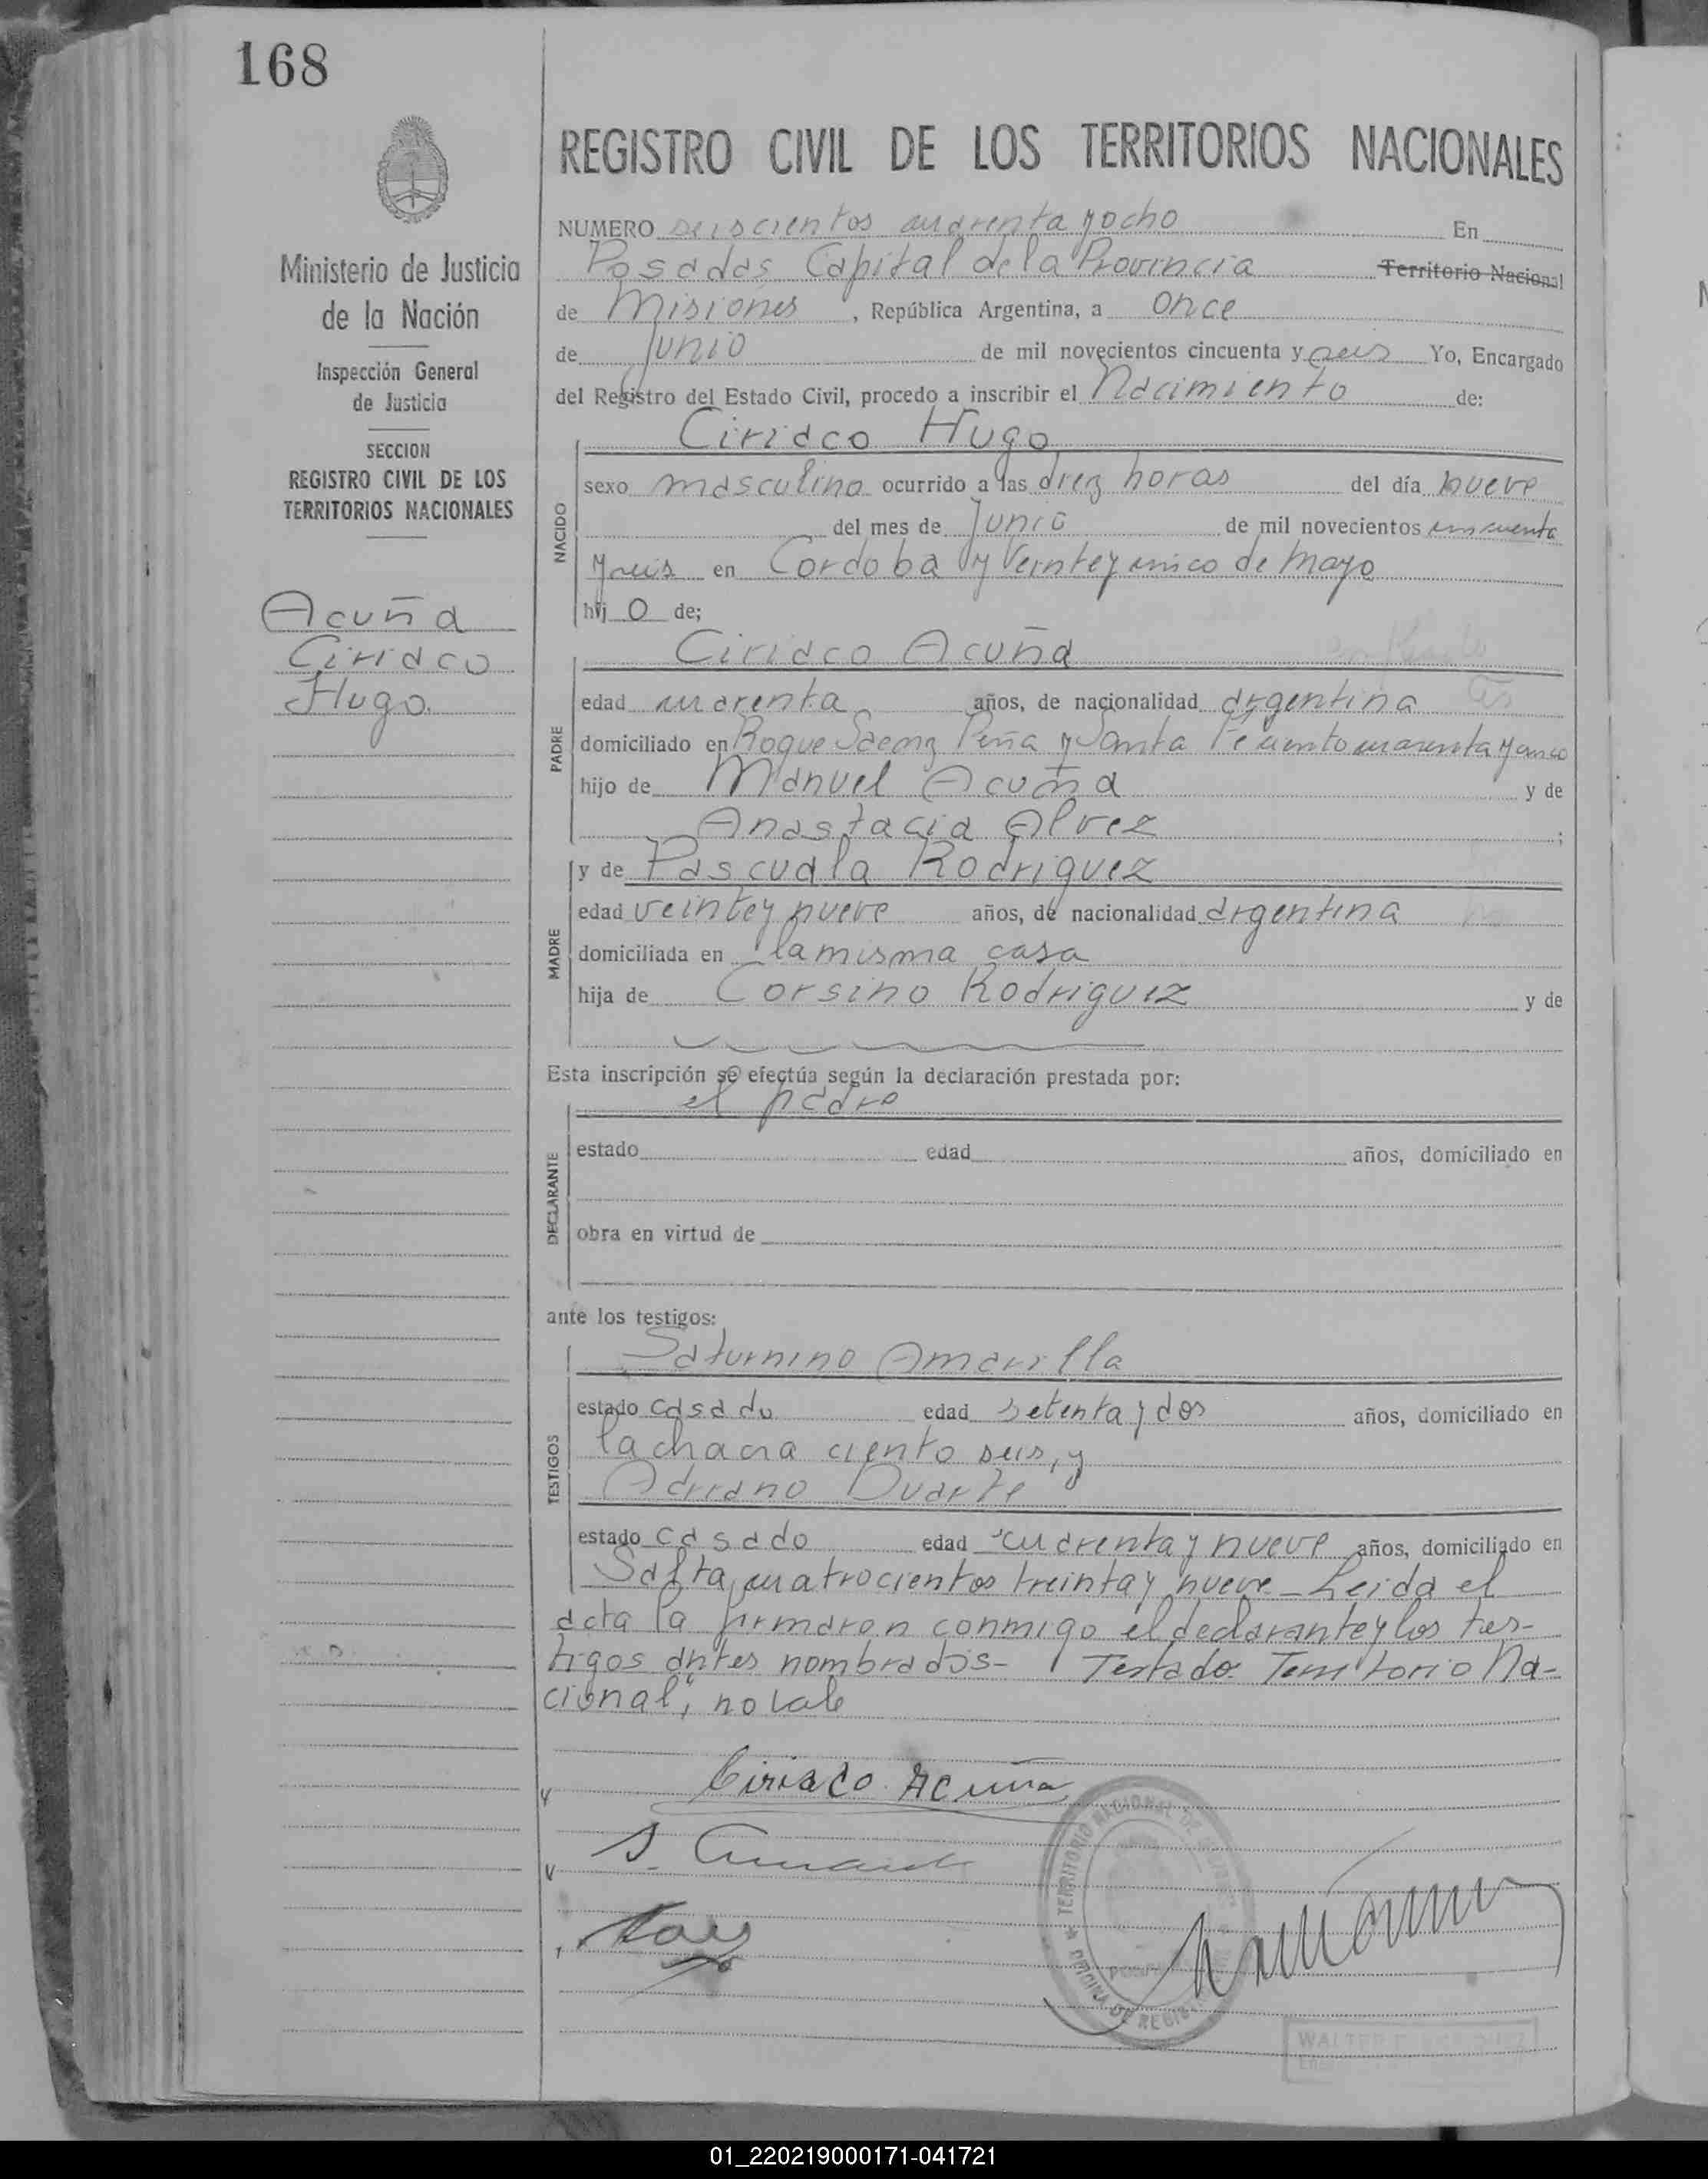 168
REGISTRO CIVIL DE LOS TERRITORIOS NACIONALES
Ministerio de Justicia
de la Nación
Inspección General
de Justicia
SECCION
REGISTRO CIVIL DE LOS
TERRITORIOS NACIONALES
Acuña
Ciriaco
Hugo
NUMERO seiscientos cuarenta y ocho En
Posadas Capital de la Provincia Territorio Nacional
de Misiones, República Argentina, a once
de Junio de mil novecientos cincuenta y seis Yo, Encargado
del Registro del Estado Civil, procedo a inscribir el Nacimiento de:
Ciriaco Hugo
NACIDO
sexo masculino ocurrido a las diez horas del día nueve
del mes de Junio de mil novecientos cincuenta
y seis en Cordoba y Veinte y cinco de Mayo
hij o de;
Ciriaco Acuña
PADRE
edad cuarenta años, de nacionalidad argentina
domiciliado en Roque Saenz Peña y Santa Fé ciento cuarenta y cinco
hijo de Manuel Acuña y de
Anastacia Alvez ;
y de Pascuala Rodriguez
MADRE
edad veinte y nueve años, de nacionalidad argentina
domiciliada en la misma casa
hija de Corsino Rodriguez y de
Esta inscripción se efectúa según la declaración prestada por:
el padre
DECLARANTE
estado edad años, domiciliado en
obra en virtud de
ante los testigos:
Saturnino Amarilla
TESTIGOS
estado casado edad setenta y dos años, domiciliado en
la chacra ciento seis, y
Adriano Duarte
estado casado edad cuarenta y nueve años, domiciliado en
Salta, cuatrocientos treinta y nueve - Leida el
acta la firmaron conmigo el declarante y los tes-
tigos antes nombrados - Testado: Territorio Na-
cional", no vale
Ciriaco Acuña
TERRITORIO NACIONAL DE
OFICINA DE REGISTRO
WALTER
01_220219000171-041721